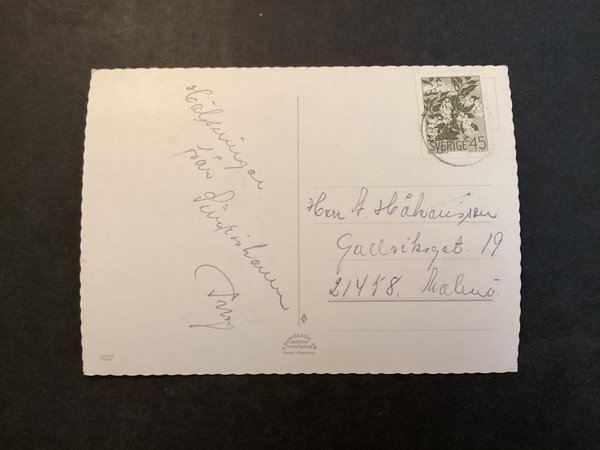 Hälsningar
från Simrishamn
SVERIGE 45
Herr A. Håkansson
Gullviksgat. 19
21458. Malmö.
1027